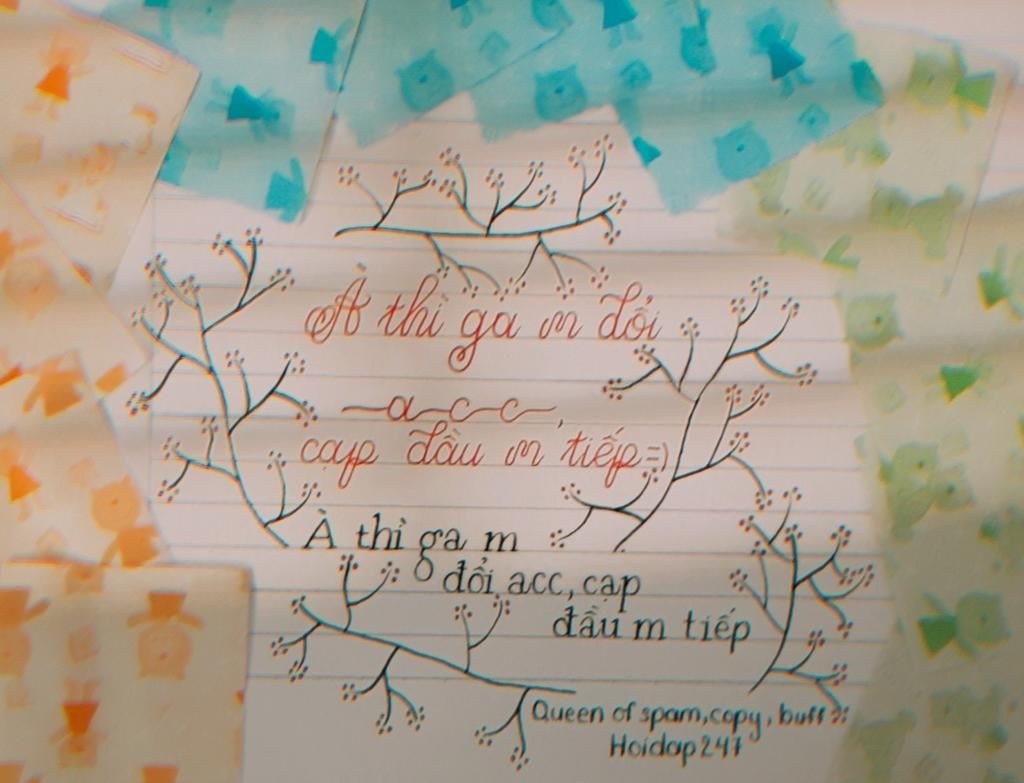 À thì ga m đổi
a c c,
cạp đầu m tiếp =)
À thì ga m
đổi acc, cạp
đầu m tiếp
Queen of spam, copy, buff :
Hoidap247